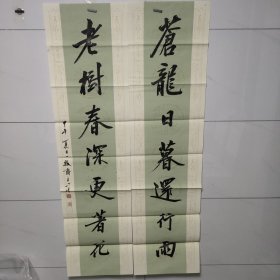 蒼龍日暮還行雨
老樹春深更著花
甲午